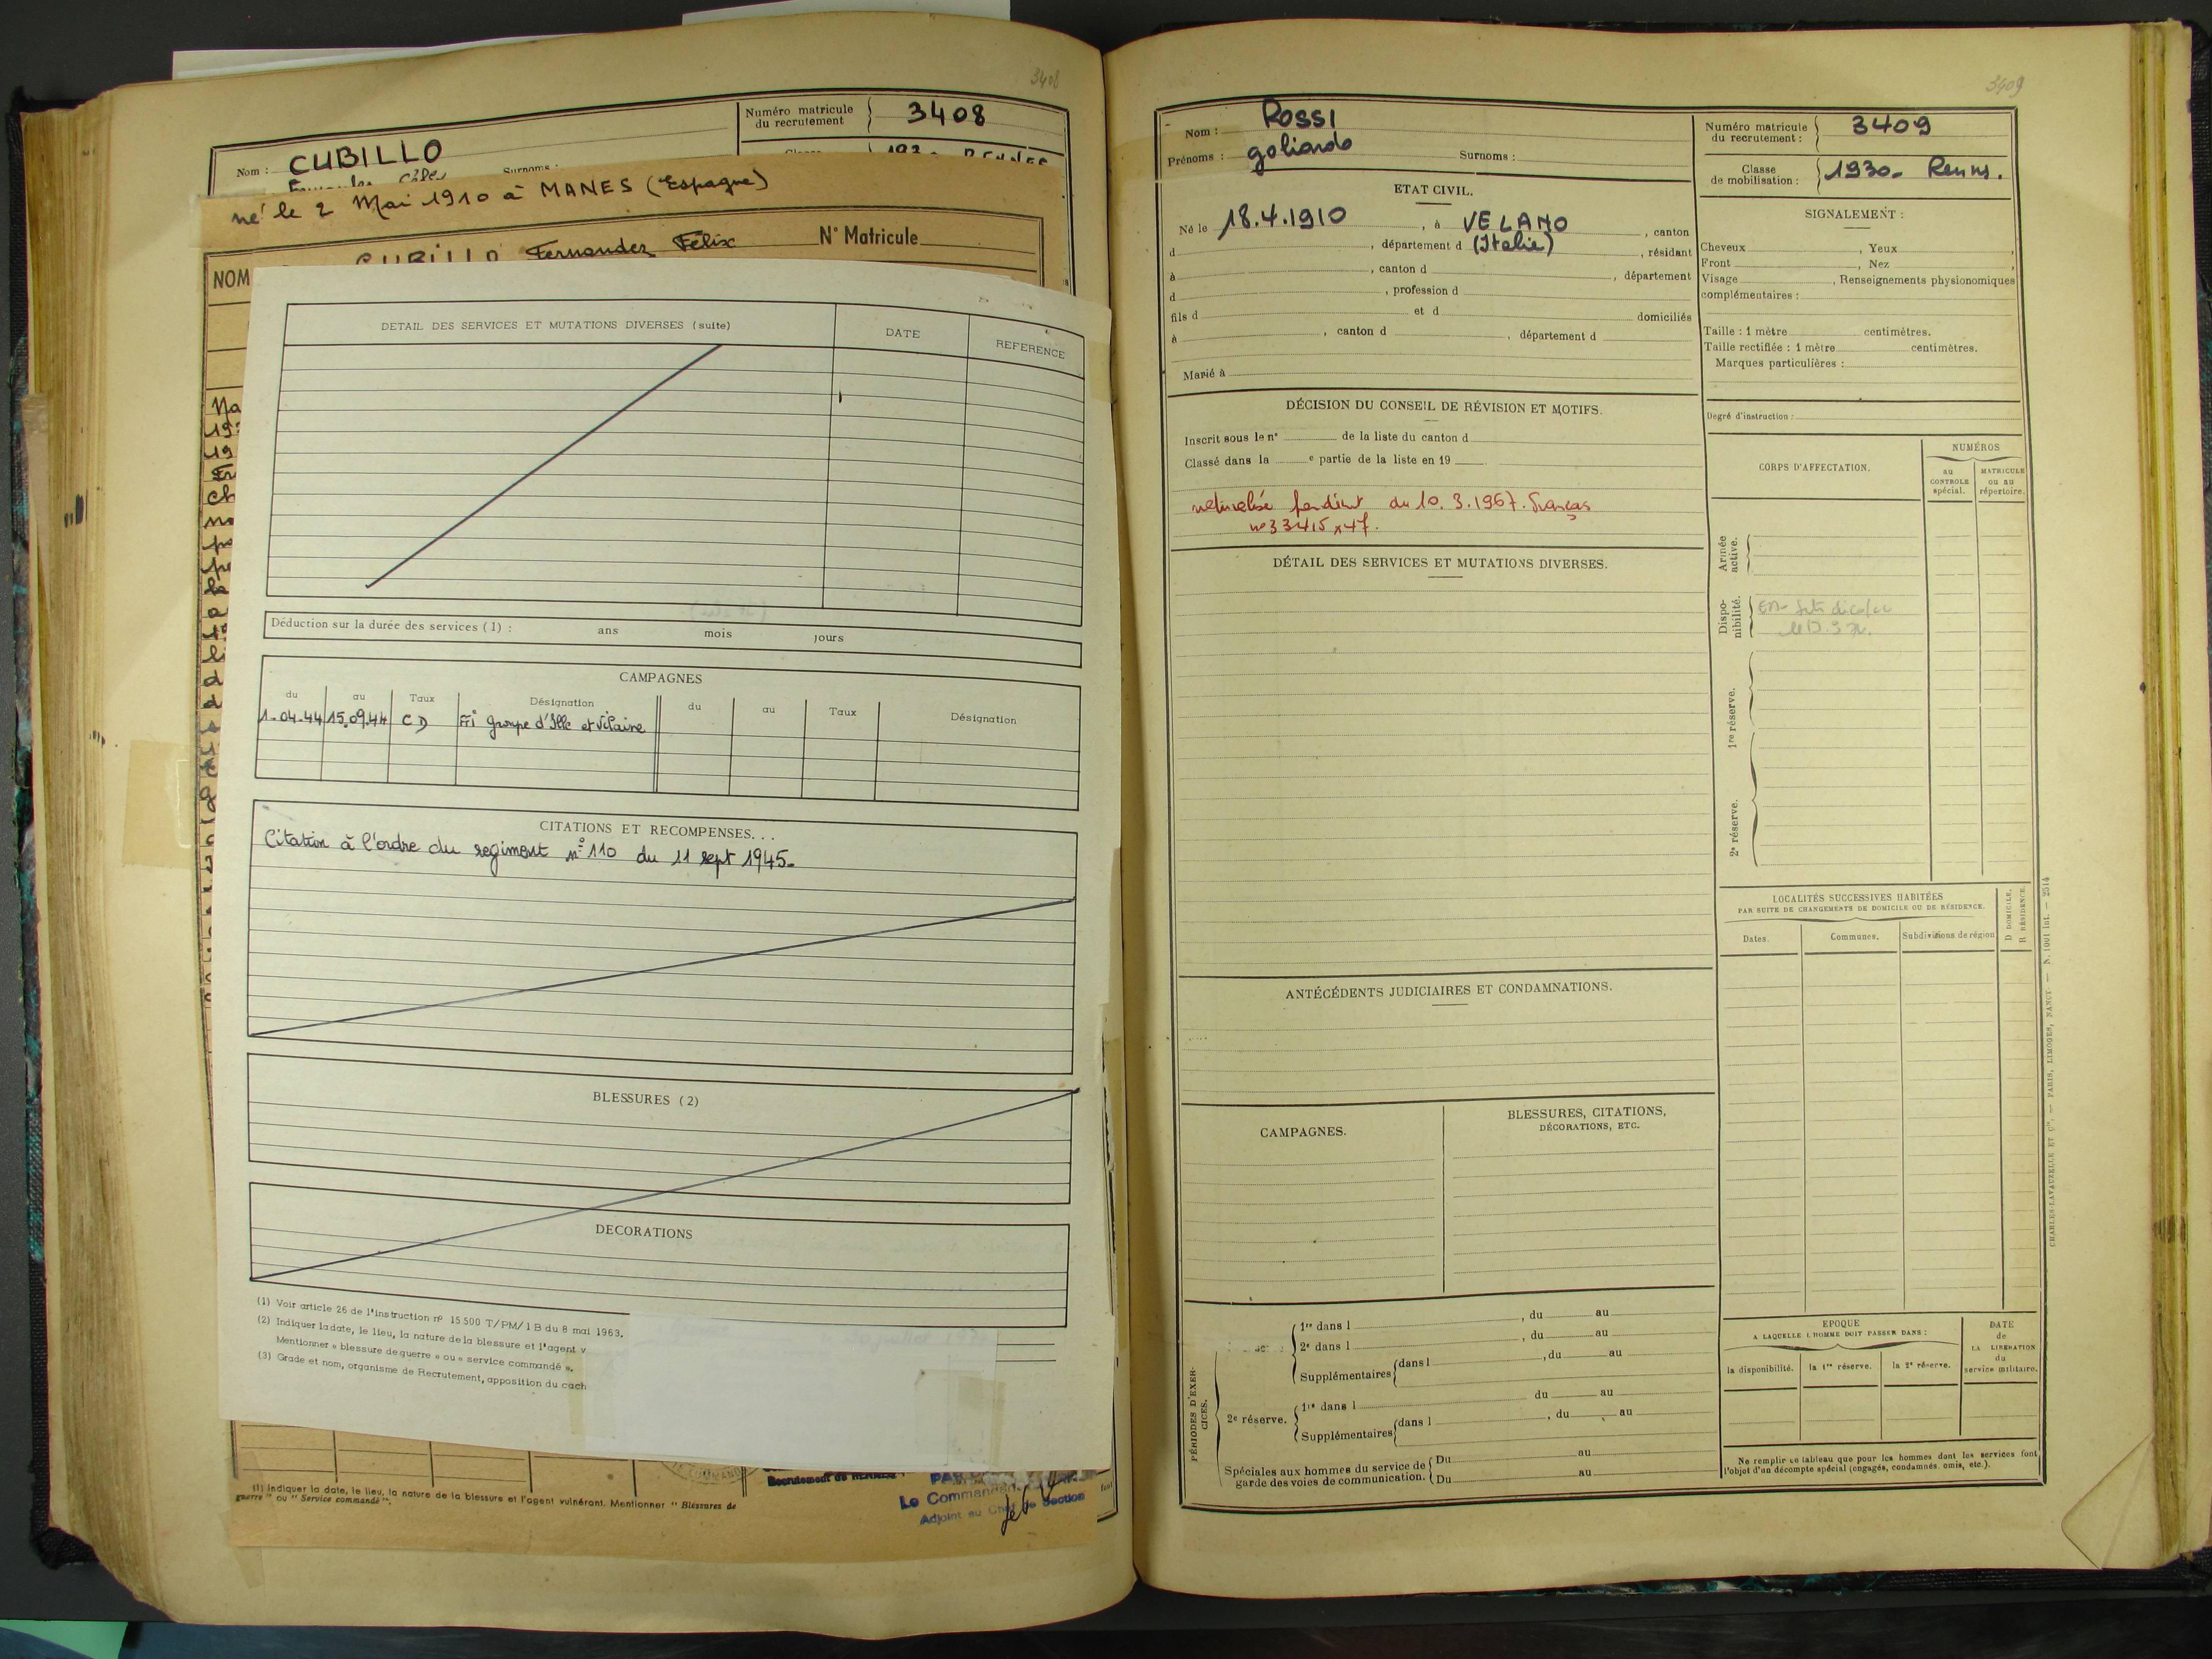 3408
Numéro matricule
du recrutement
3408
Nom : CUBILLO
Surnoms :
né le 2 Mai 1910 à MANES (Espagne)
NOM CUBILLO Fernandez Félix N° Matricule
DETAIL DES SERVICES ET MUTATIONS DIVERSES (suite)
DATE
REFERENCE
Déduction sur la durée des services (1) : ans mois jours
CAMPAGNES
du au Taux Désignation du au Taux Désignation
1-04-44 15.09.44 CD FFI groupe d'Ille et Vilaine
CITATIONS ET RECOMPENSES...
Citation à l'ordre du regiment n° 110 du 11 sept 1945.
BLESSURES (2)
DECORATIONS
(1) Voir article 26 de l'instruction nº 15500 T/PM/1 B du 8 mai 1963.
(2) Indiquer la date, le lieu, la nature de la blessure et l'agent v
Mentionner « blessure de guerre » ou « service commandé ».
(3) Grade et nom, organisme de Recrutement, apposition du cach
Recrutement de RENNES
Le Commandant
Adjoint au Chef de Section
(1) Indiquer la date, le lieu, la nature de la blessure et l'agent vulnérant. Mentionner " Blessures de
guerre " ou " Service commandé ".
3409
Nom : ROSSI
Prénoms : goliardo Surnoms :
Numéro matricule
du recrutement :
3409
Classe
de mobilisation :
1930- Rennes.
ETAT CIVIL.
Né le 18.4.1910, à VELANO, canton
d , département d (Italie), résidant
à , canton d , département
d , profession d
fils d et d domiciliés
à , canton d , département d
Marié à
SIGNALEMENT :
Cheveux , Yeux ,
Front , Nez ,
Visage , Renseignements physionomiques
complémentaires :
Taille : 1 mètre centimètres.
Taille rectifiée : 1 mètre centimètres.
Marques particulières :
Degré d'instruction :
DÉCISION DU CONSEIL DE RÉVISION ET MOTIFS.
Inscrit sous le n° de la liste du canton d
Classé dans la e partie de la liste en 19
du 10. 3. 1967.
n° 33415 x 47.
DÉTAIL DES SERVICES ET MUTATIONS DIVERSES.
CORPS D'AFFECTATION.
NUMÉROS
au
CONTROLE
spécial.
MATRICULE
ou au
répertoire.
Armée
active.
Dispo-
nibilité.
1re réserve.
2e réserve.
LOCALITÉS SUCCESSIVES HABITÉES
PAR SUITE DE CHANGEMENTS DE DOMICILE OU DE RÉSIDENCE.
D DOMICILE.
R RÉSIDENCE.
Dates. Communes. Subdivisions de région
ANTÉCÉDENTS JUDICIAIRES ET CONDAMNATIONS.
CAMPAGNES.
BLESSURES, CITATIONS,
DÉCORATIONS, ETC.
PÉRIODES D'EXER-
CICES.
1re dans l , du au
2e dans l , du au
Supplémentaires dans l , du au
2e réserve.
1re dans l du au
Supplémentaires dans l , du au
Spéciales aux hommes du service de
garde des voies de communication.
Du au
Du au
EPOQUE
A LAQUELLE L'HOMME DOIT PASSER DANS :
la disponibilité. la 1re réserve. la 2e réserve.
DATE
de
LA LIBERATION
du
service militaire.
Ne remplir ce tableau que pour les hommes dont les services font
l'objet d'un décompte spécial (engagés, condamnés, omis, etc.).
CHARLES-LAVAUZELLE ET Cie. — PARIS, LIMOGES, NANCY. — N. 1001 int. — 2514